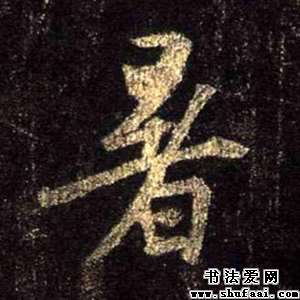 暑
书法爱网
www.shufaai.com